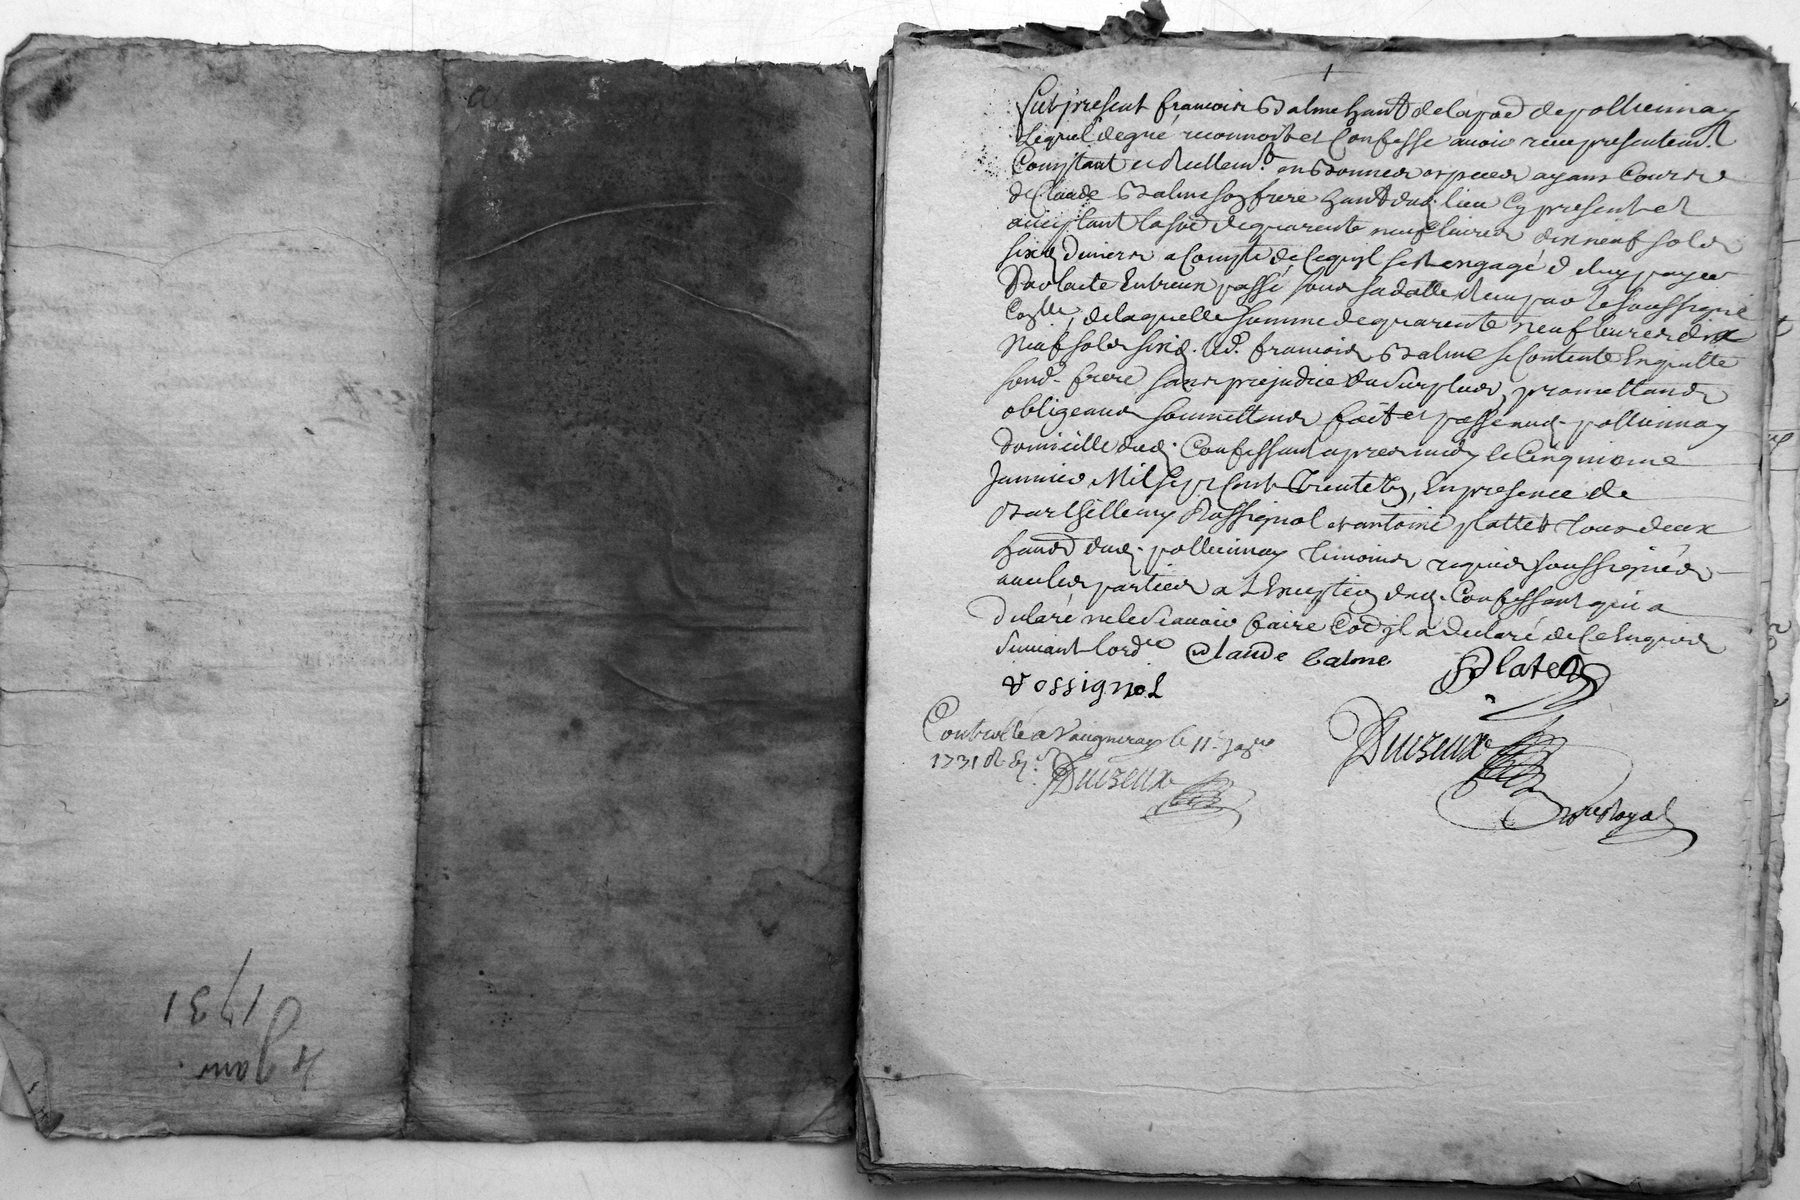 Fut present francois Balme hant de la parr de pollionnay
lequel de gré reconnoit et Confesse avoir receu presentemt
Comptant et reellemt en bonnes especes ayans Cours
de Claude Balme son frere hant dud. lieu Cy present et
acceptant la so๊e de quarente neuf livres dix neuf sols
six deniers a Compte de ce quil s'est engagé de luy payer
par lacte Entreux passé sous sa datte receu par le soussigné
de laquelle somme de quarente neuf livres dix
neuf sols six d. led. francois Balme se Contente En quitte
sond. frere sans prejudice du surplus, promettans
obligeans soumettans fait et passé aud. pollionnay
domicille dud. Confessant apres midy le Cinquieme
Janvier Mil sept cent trente un, En presence de
Barthellemy Rossignol et antoine plattet tous deux
hants dud. pollionnay temoins requis soussignés
avec les parties a L'Exception dud. Confessant qui a
declaré ne le scavoir faire de ce Enquis
suivant lordce Claude balme Platet
rossignol
Controllé a Vaugneray le 11e Janer
1731 R
Duizeux
Duizeux
nore Royal
1731
Janv.